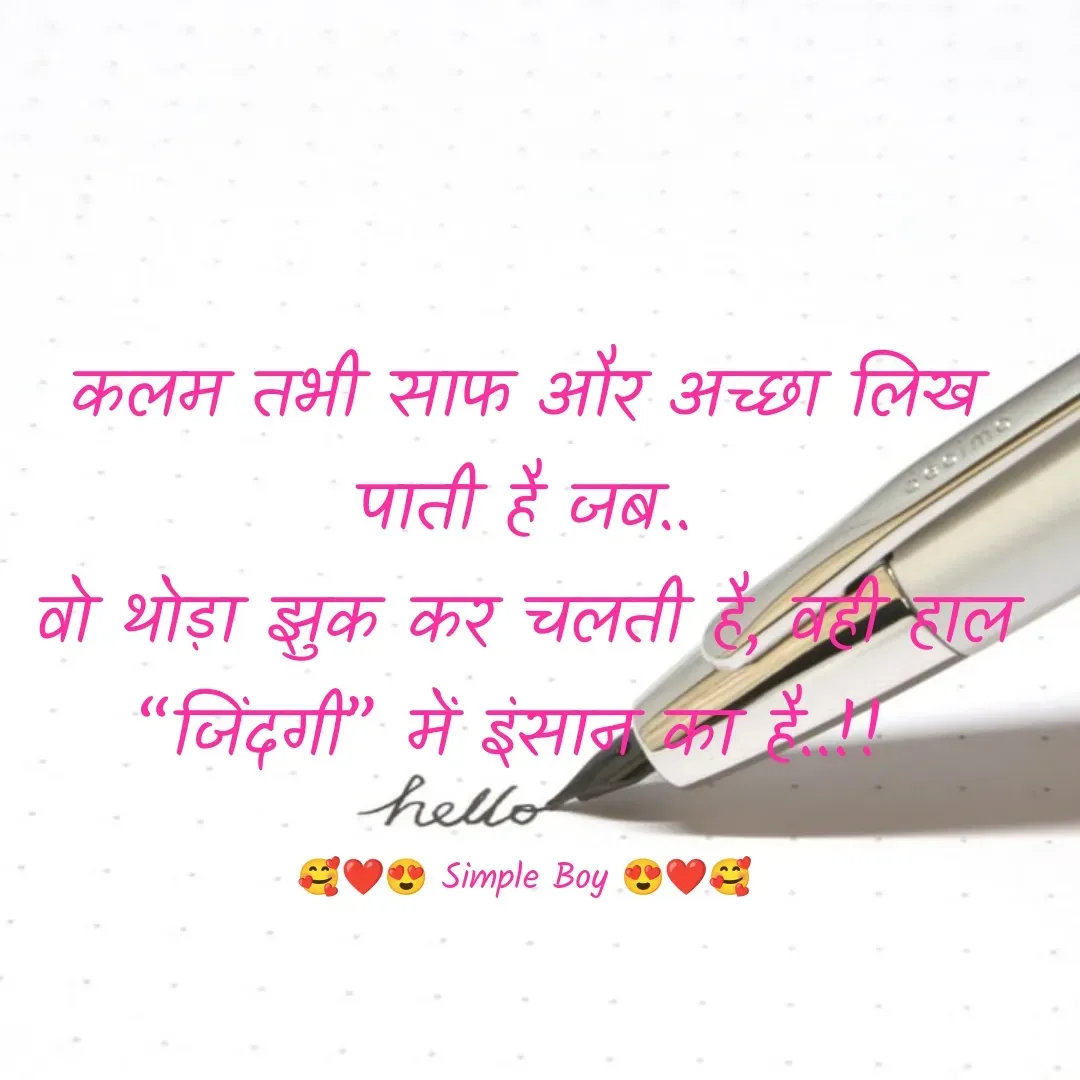 कलम तभी साफ और अच्छा लिख
पाती है जब..
वो थोड़ा झुक कर चलती है, वही हाल
“जिंदगी” में इंसान का है..!!
hello
🥰❤️😍 Simple Boy 😍❤️🥰